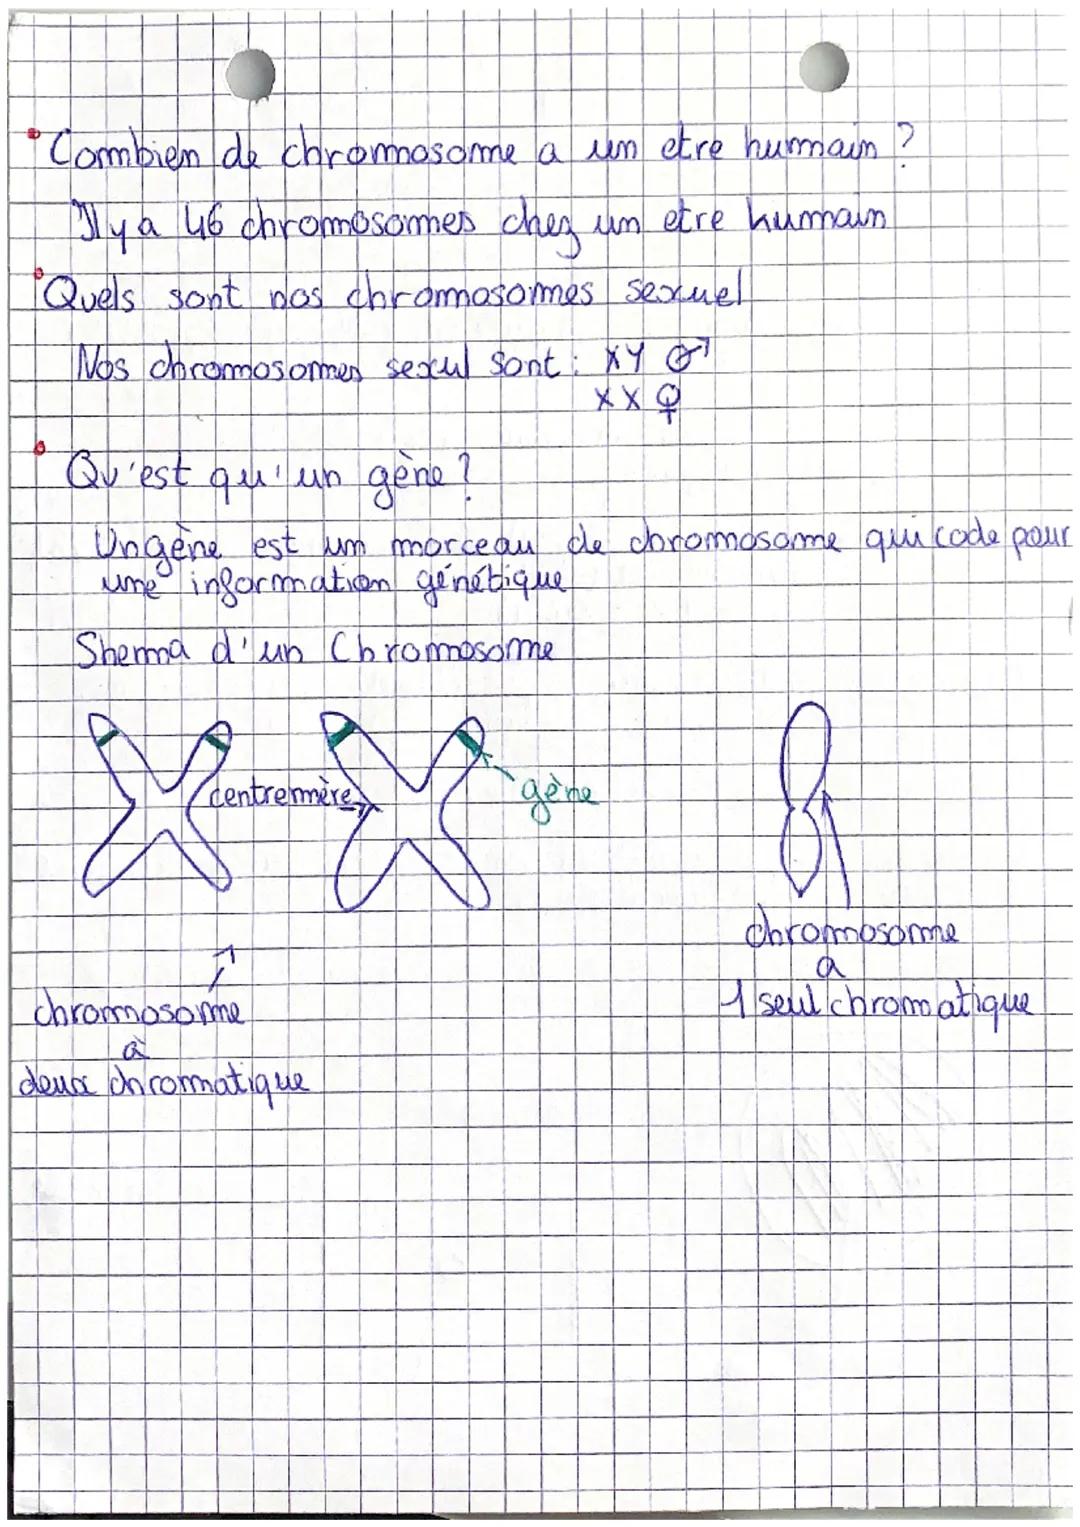 Combien de chromosome a un etre humain ?
Il y a 46 chromosomes chez un etre humain
Quels sont nos chromosomes sexuel
Nos chromosomes sexul sont : XY ♂
XX ♀
Qu'est qu'un gène ?
Un gène est un morceau de chromosome qui code pour
une information génétique
Shema d'un Chromosome
centremère
gène
chromosome
a
1 seul chromatique
chromosome
à
deux chromatique